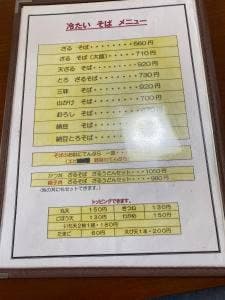 冷たい そば メニュー
ざる そば・・・・・・・・560円
ざる そば (大盛)・・・・・710円
天ざる そば・・・・・・・920円
とろ ざるそば・・・・・・730円
三味 そば・・・・・・・・920円
山かけ そば・・・・・・・700円
おろし そば・・・・・・・
納豆 そば・・・・・・・・
納豆とろそば・・・・・・・
かつ丼 ざるそば ざるうどんセット・・・1050円
親子丼 ざるそば ざるうどんセット・・・980円
(他の丼にもセットできます。)
トッピングできます。
丸天 150円 きつね 130円
ごぼう天 130円 わかめ 150円
いも天2枚1組・180円
たまご 60円 えび天1本・200円